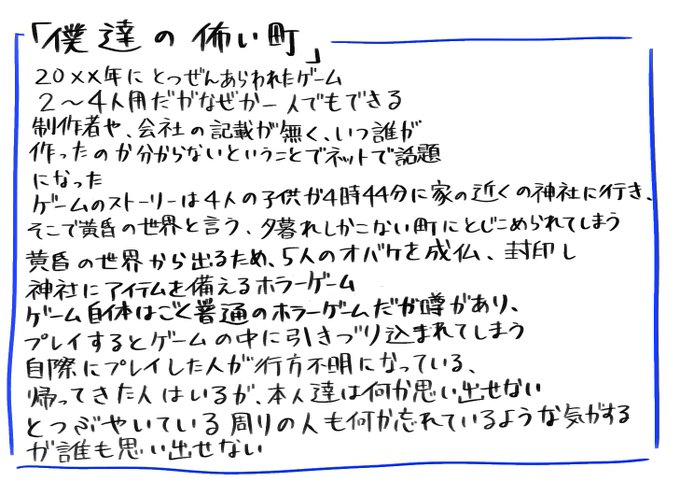 「僕達の怖い町」
20××年にとつぜんあらわれたゲーム
2～4人用だがなぜか一人でもできる
制作者や、会社の記載が無く、いつ誰が
作ったのか分からないということでネットで話題
になった
ゲームのストーリーは4人の子供が4時44分に家の近くの神社に行き、
そこで黄昏の世界と言う、夕暮れしかこない町にとじこめられてしまう
黄昏の世界から出るため、5人のオバケを成仏、封印し
神社にアイテムを備えるホラーゲーム
ゲーム自体はごく普通のホラーゲームだが噂があり、
プレイするとゲームの中に引きづり込まれてしまう
自際にプレイした人が行方不明になっている、
帰ってきた人はいるが、本人達は何か思い出せない
とつぶやいている周りの人も何か忘れているような気がする
が誰も思い出せない